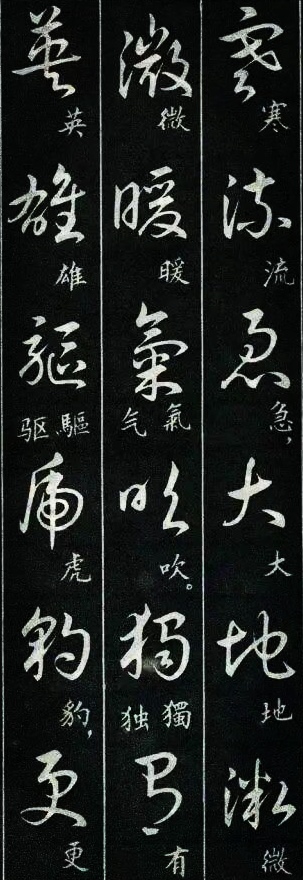 寒流急大地微
寒流急，大地微
微暖氣吹獨有
微暖氣气吹。獨独有
英雄驅虎豹更
英雄驅驱虎豹，更